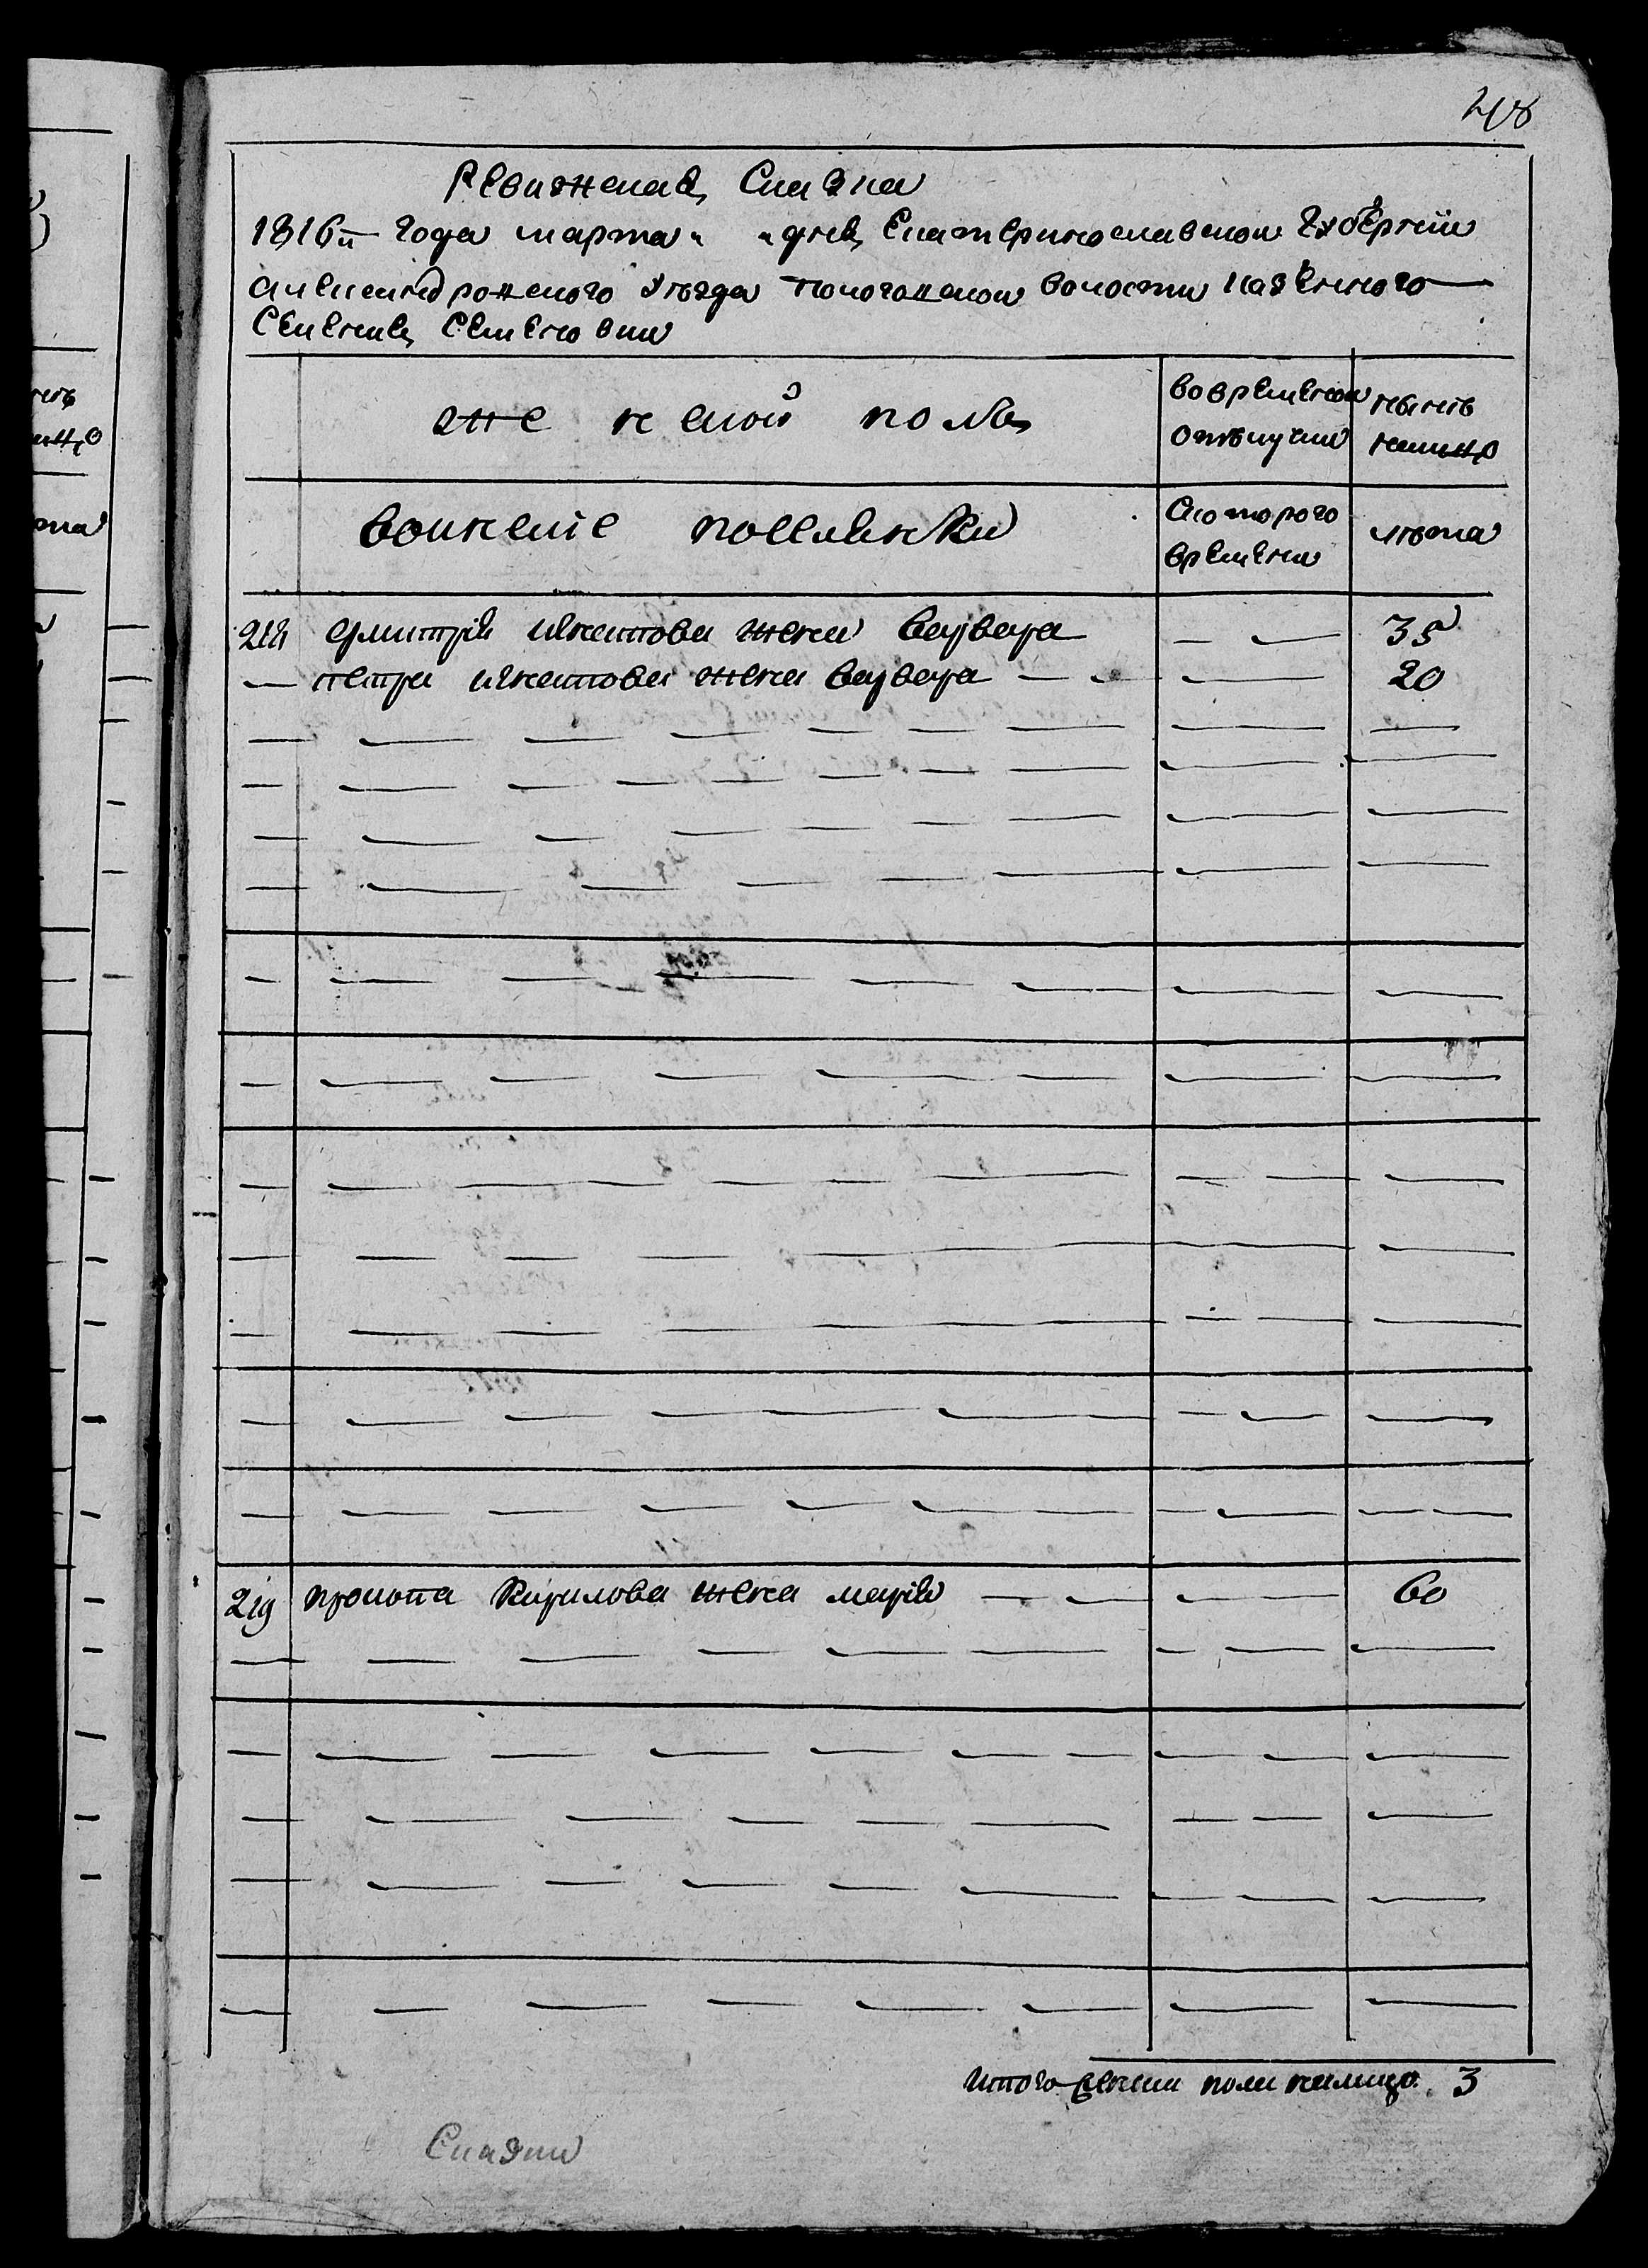 Ревижская Сказка
1816го года марта „ „ дня Екатеринославской Губернии
Александровского Уезда Пологовской волости казенного
Селения Семеновки
женской полъ
во временной отлучки
нынѣ налицо
воинские поселянки
С котораго времени
лѣта
218 дмитрия игнатова жена варвара 35
петра игнатова жена варвара 20
219 прокопа Кирилова жена мария 60
Итого женска пола налицо 3
Сказки